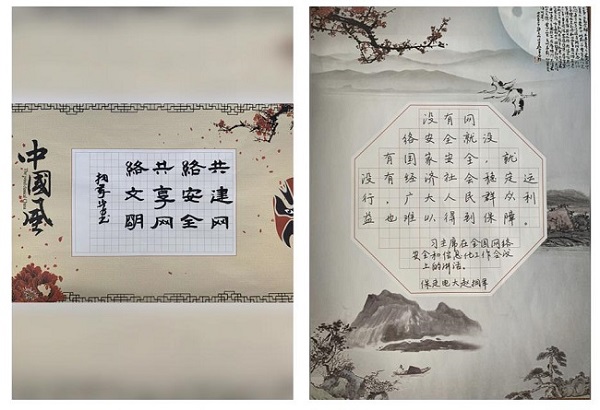 中國風
共建网
絡安全
共享网
絡文明
没有网
络安全就没
有国家安全，就
没有经济社会稳定运
行，广大人民群众利
益，也难以得到保障。
习主席在全国网络
安全和信息化工作会议
上的讲话。
保定电大赵拥军